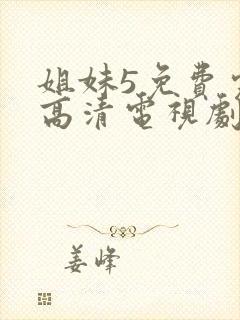 姐妹5免費
高清電視劇
姜峰